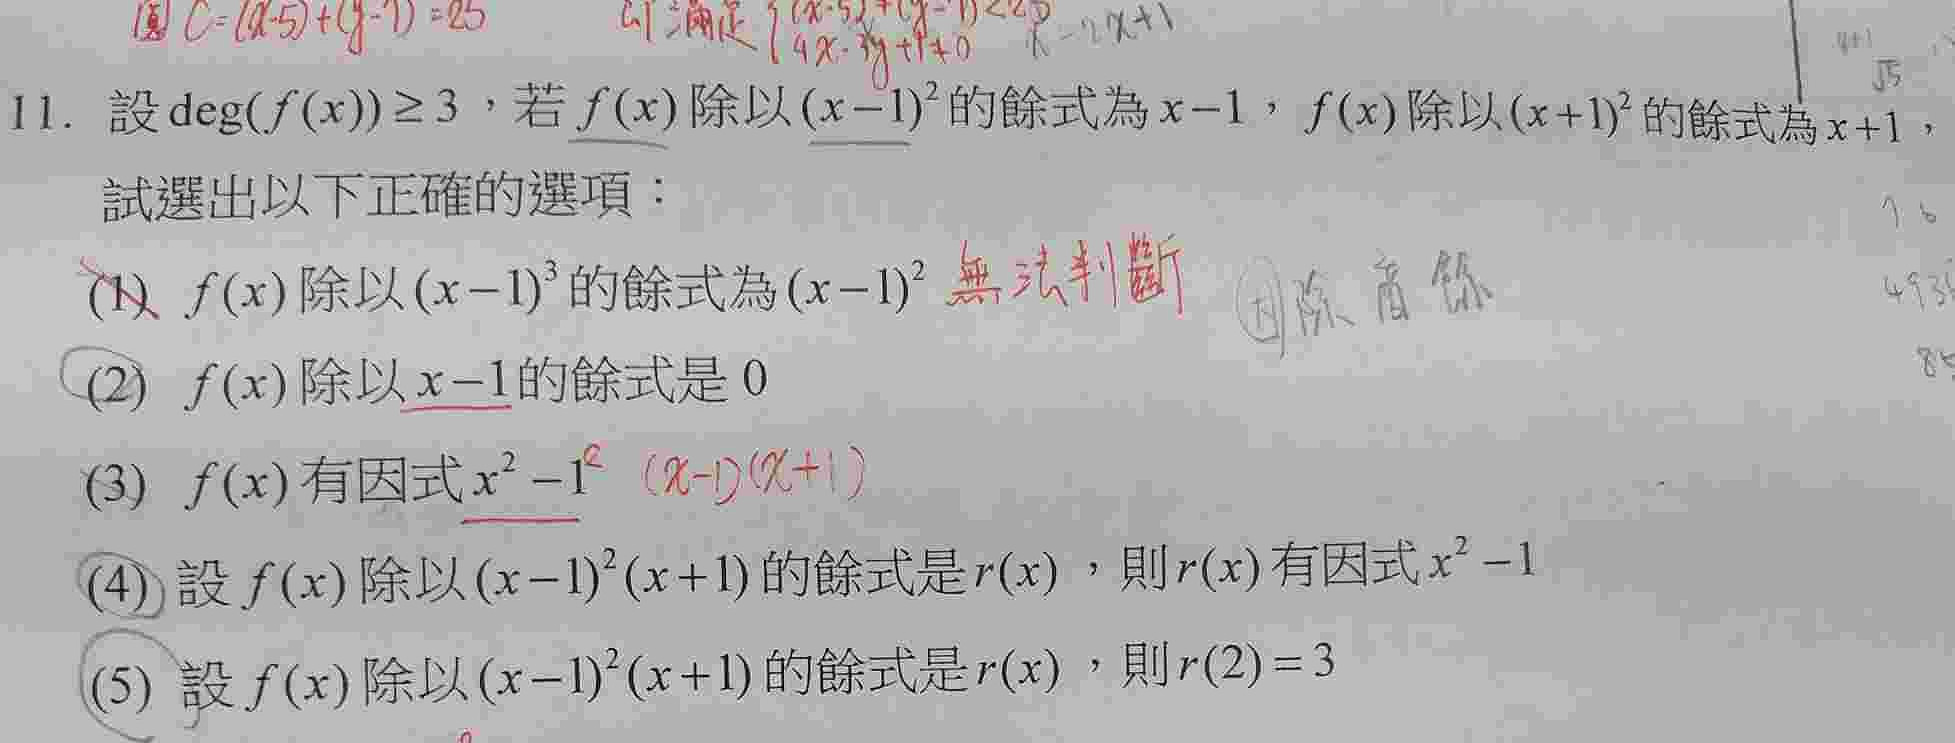 圓 C=(x-5)+(y-7)=25
x-2x+1
√5
11. 設 deg(f(x)) ≥ 3,若 f(x) 除以 (x−1)² 的餘式為 x−1,f(x) 除以 (x+1)² 的餘式為 x+1,
試選出以下正確的選項:
(1) f(x) 除以 (x−1)³ 的餘式為 (x−1)² 無法判斷
(2) f(x) 除以 x−1 的餘式是 0
(3) f(x) 有因式 x² −1 (x-1)(x+1)
(4) 設 f(x) 除以 (x−1)²(x+1) 的餘式是 r(x),則 r(x) 有因式 x² −1
(5) 設 f(x) 除以 (x−1)²(x+1) 的餘式是 r(x),則 r(2) = 3